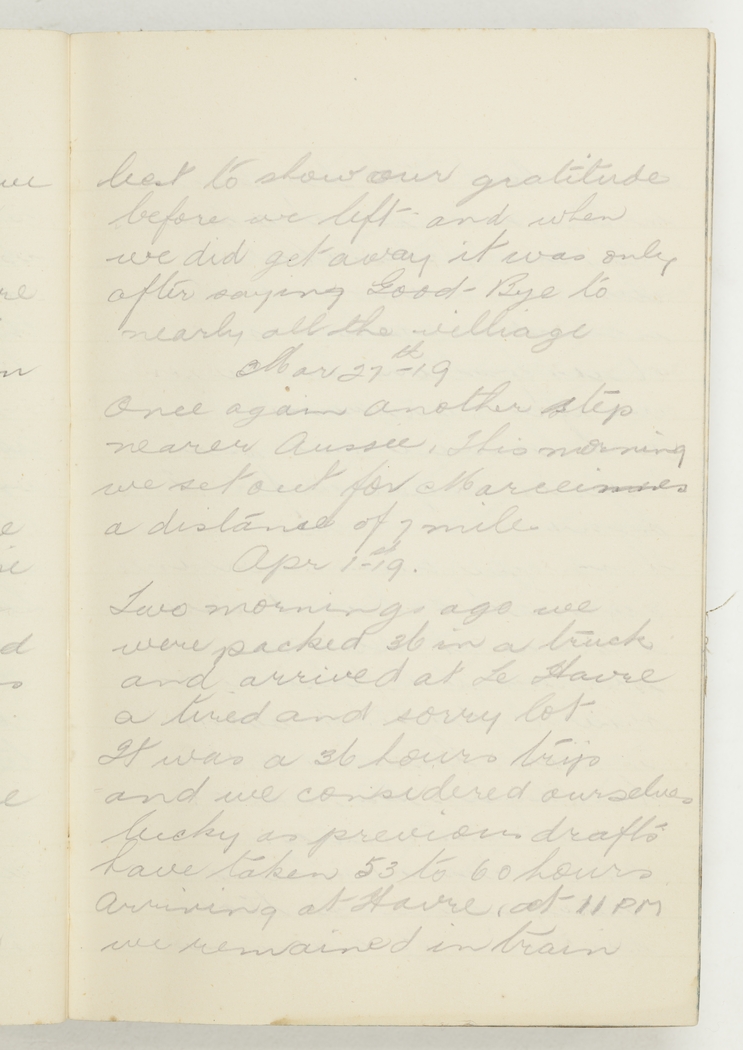 best to show our gratitude
before we left and when
we did get away it was only
after saying Good-Bye to
nearly all the villiage
Mar 27th-19
Once again another step
nearer Aussie. This morning
we set out for
a distance of 7 mile
Apr 1st-19.
Two mornings ago we
were packed 36 in a truck
and arrived at Le Havre
a tired and sorry lot
It was a 36 hours trip
and we considered ourselves
lucky as previous drafts
have taken 53 to 60 hours
Arriving at Havre, at 11 PM
we remained in train